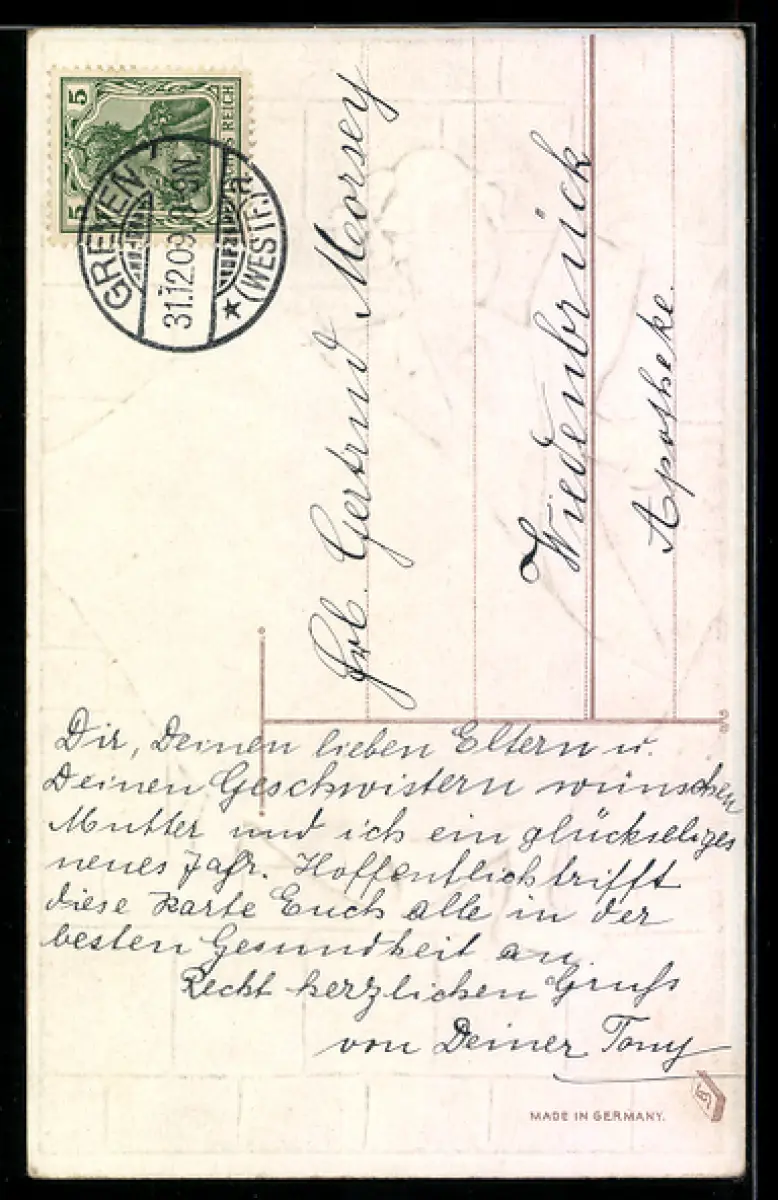 5 5
DEUTSCHES REICH
GREVEN
31.12.09. 8-9N.
*(WESTF.)
Frl. Gertrud Morsey
Wiedenbrück
Apotheke.
Dir, Deinen lieben Eltern u.
Deinen Geschwistern wünschen
Mutter und ich ein glückseliges
neues Jahr. Hoffentlich trifft
diese Karte Euch alle in der
besten Gesundheit an.
Recht herzlichen Gruß
von Deiner Tony
MADE IN GERMANY.